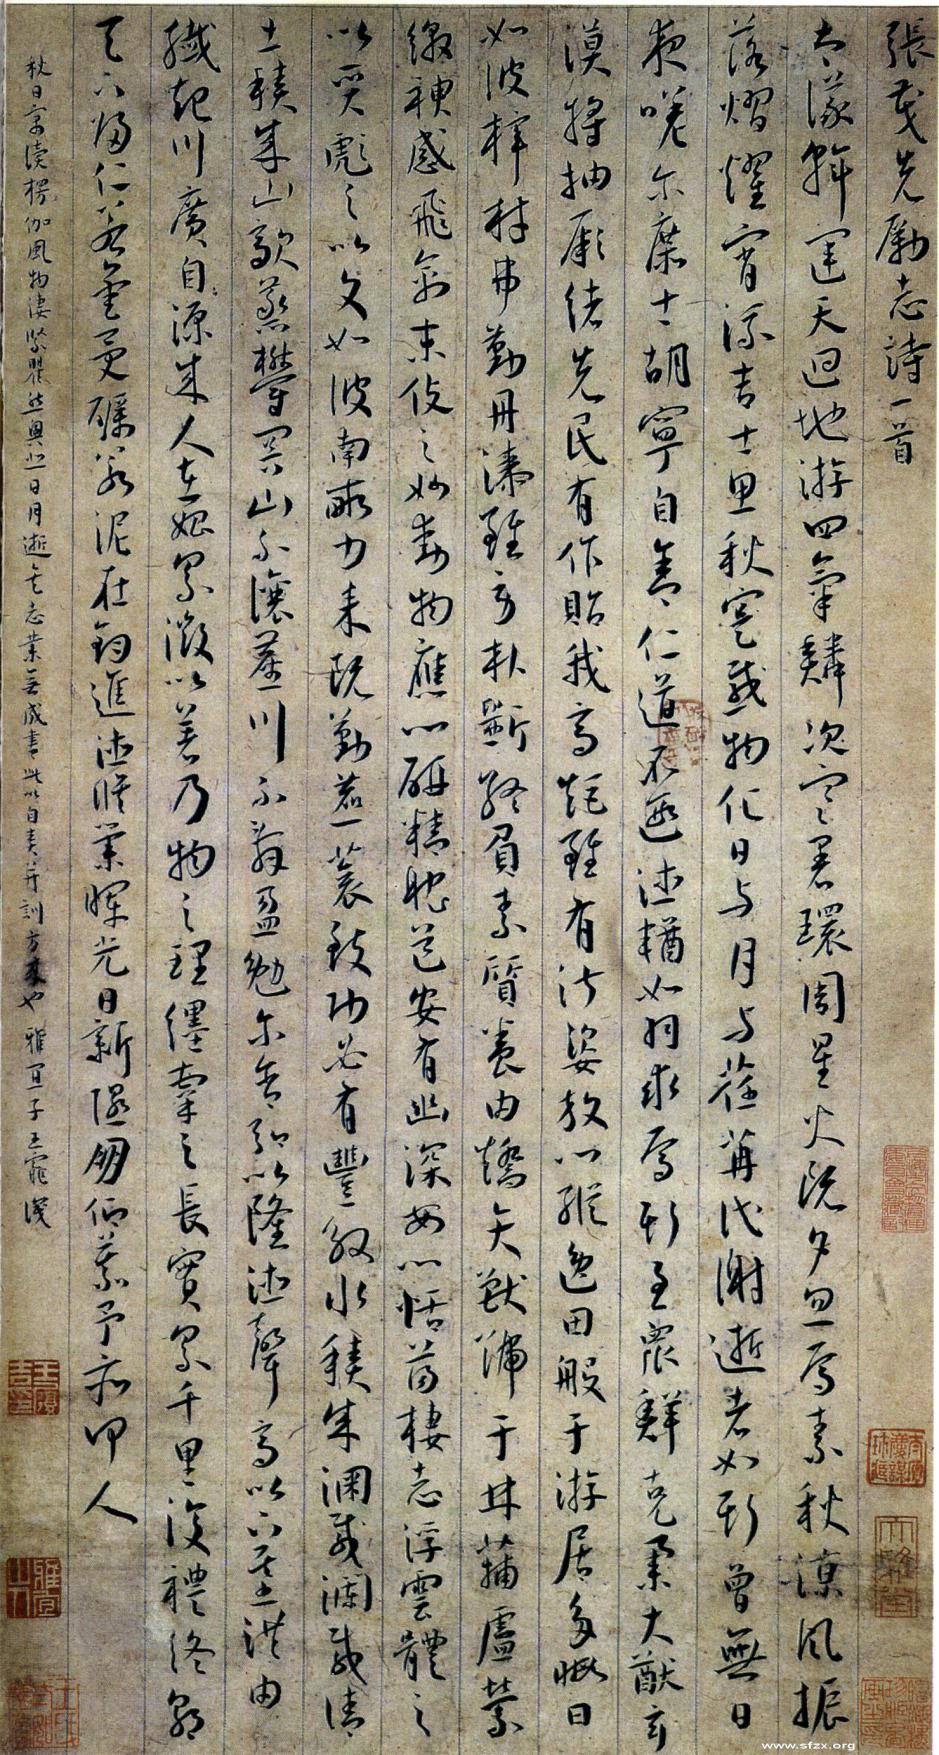 張茂先勵志詩一首
大儀斡運天迴地游四氣鱗次寒暑環周星火既夕忽焉素秋涼風振
落熠燿宵流吉士思秋寔感物化日与月与荏苒代謝逝者如斯曾無日
夜嗟尔庶士胡寧自舍仁道不遐德輶如羽求焉斯至衆鮮克舉大猷玄
漠將抽厥緒先民有作貽我高矩雖有淑姿放心縱逸田般于游居多暇日
如彼梓材弗勤丹漆雖勞朴斲終負素質養由矯矢獸號于林蒱盧縈
繳神感飛禽末伎之妙動物應心研精耽道安有幽深安心恬蕩棲志浮雲體之
以質彪之以文如彼南畝力耒既勤藨蓘致功必有豐殷水積成淵載瀾載清
土積成山歊蒸鬱冥山不讓塵川不辭盈勉尔含弘以隆德聲高以下基洪由
纖起川廣自源成人在始累微以著乃物之理纆牽之長實累千里復禮終朝
天下歸仁若金受礪若泥在鈞進德脩業暉光日新隰朋仰慕予亦何人
秋日寓讀楞伽風物淒緊瞿然興悲日月逝矣志業無成書此以自責并訓方來也 雅宜子王寵識
www.sfzx.org